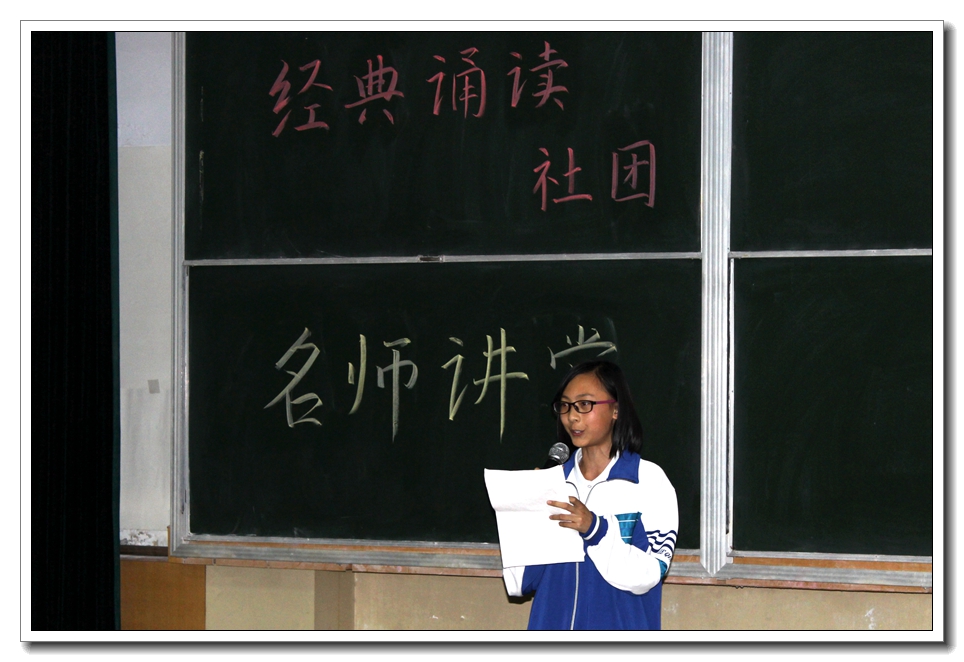 经典诵读
社团
名师讲堂